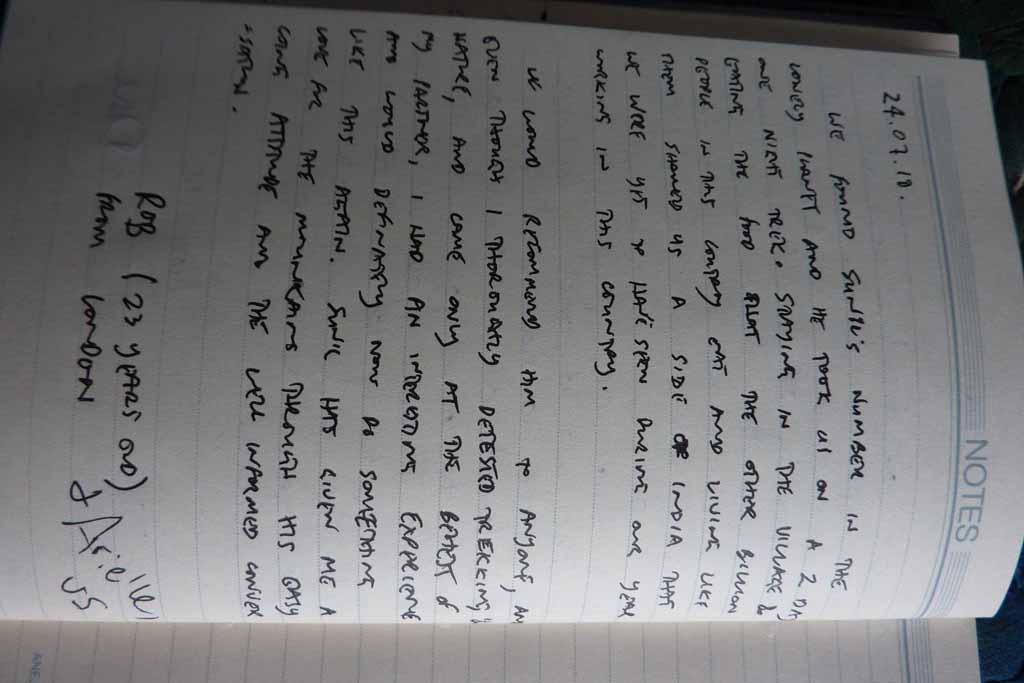 NOTES
24.07.18.
WE FOUND SUNIL'S NUMBER IN THE
LONELY PLANET AND HE TOOK US ON A 2 DAY
ONE NIGHT TREK. STAYING IN THE VILLAGE &
EATING THE FOOD THAT THE OTHER BILLION
PEOPLE IN THIS COUNTRY EAT AND LIVING LIKE
THEM SHOWED US A SIDE OF INDIA THAT
WE WERE YET TO HAVE SEEN DURING OUR YEAR
WORKING IN THIS COUNTRY.
WE WOULD RECOMMEND HIM TO ANYONE, AN
EVEN THOUGH I THOROUGHLY DETESTED TREKKING,
NATURE, AND CAME ONLY AT THE BEHEST OF
MY PARTNER, I HAD AN INTERESTING EXPERIENCE
AND WOULD DEFINATELY NOW DO SOMETHING
LIKE THIS AGAIN. SUNIL HAS GIVEN ME A
LOVE FOR THE MOUNTAINS THROUGH HIS EASY
GOING ATTITUDE AND THE WELL INFORMED CONVER
-SATION.
Rob (23 YEARS OLD)
FROM LONDON